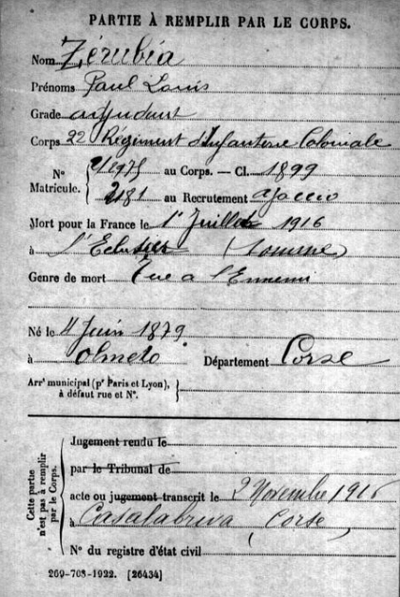 PARTIE À REMPLIR PAR LE CORPS.
Nom Zérubia
Prénoms Paul Louis
Grade adjudant
Corps 22 Régiment d'Infanterie Coloniale
N° Matricule. { au Corps. — Cl. 1899
2181 au Recrutement ajaccio
Mort pour la France le 1er Juillet 1916
à l'Eclusier (Somme)
Genre de mort Tué a l'Ennemi
Né le 4 Juin 1879
à olmeto Département Corse
Arrt municipal (pr Paris et Lyon), à défaut rue et N°.
Cette partie n'est pas à remplir par le Corps.
Jugement rendu le
par le Tribunal de
acte ou jugement transcrit le 2 Novembre 1916
à Casalabriva (Corse)
N° du registre d'état civil
269-708-1922. [26434]